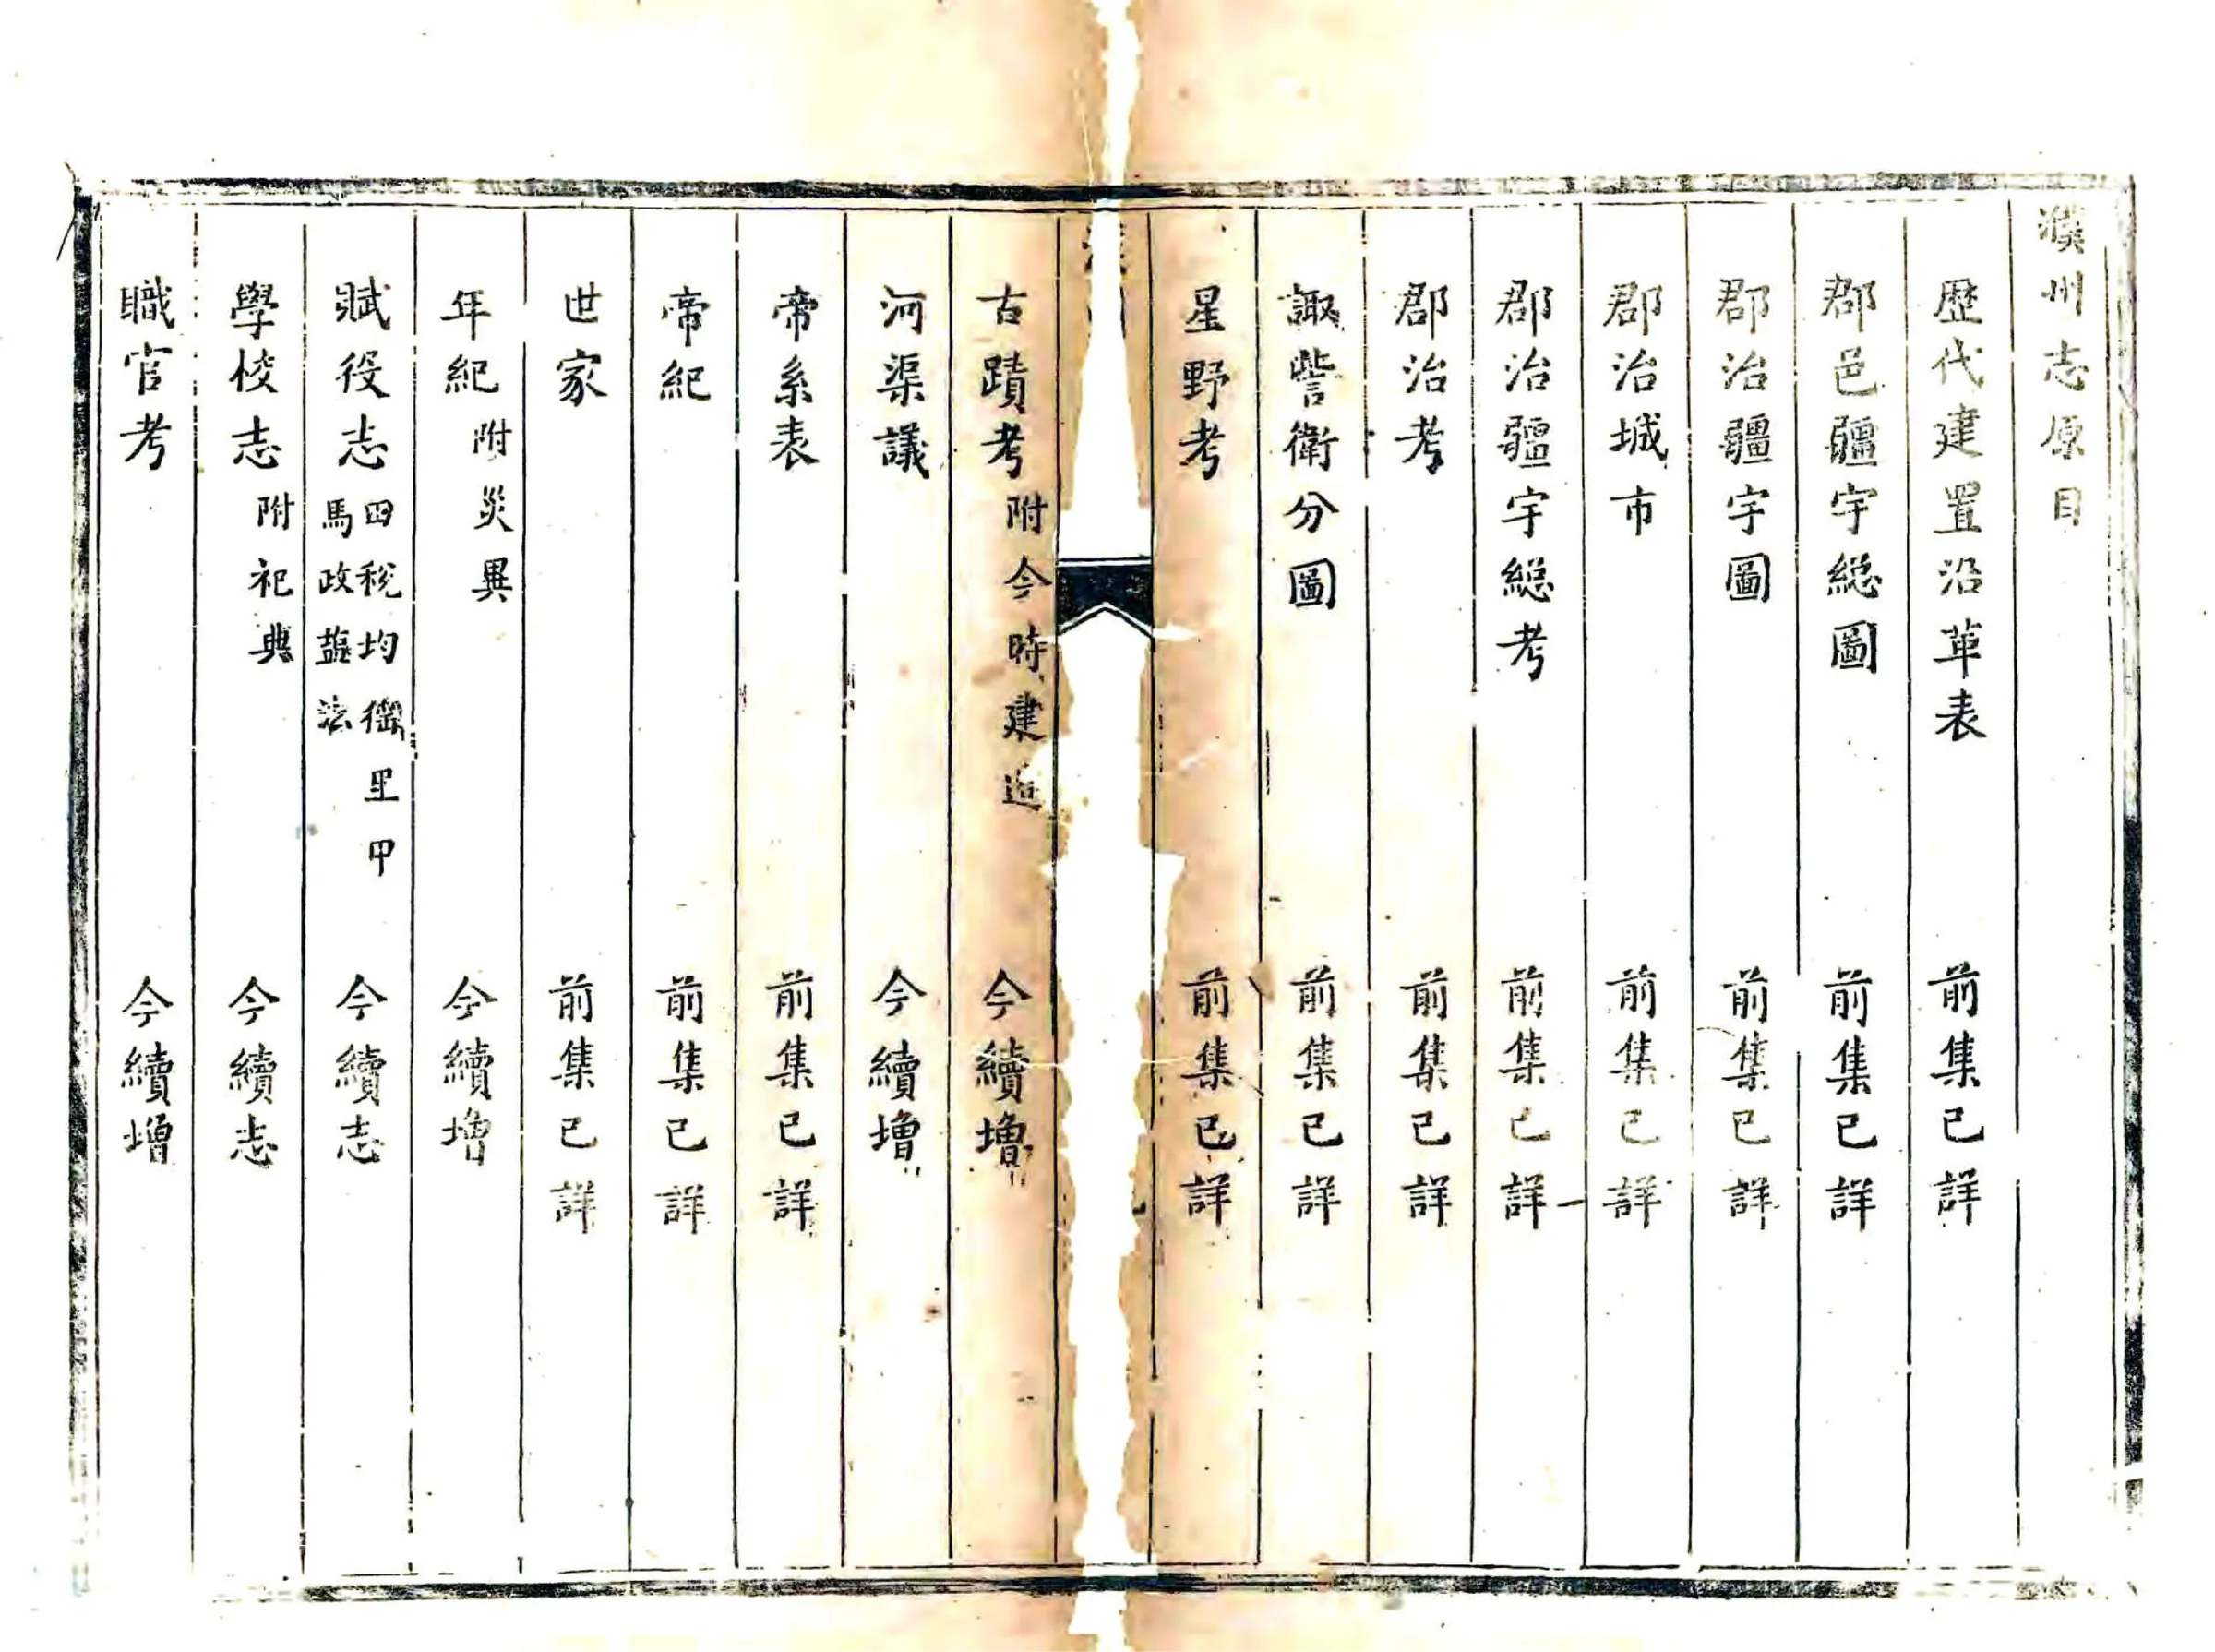 濮州志原目
歷代建置沿革表 前集已詳
郡邑疆宇緫圖 前集已詳
郡治疆宇圖 前集已詳
郡治城市 前集已詳
郡治疆宇緫考 前集已詳
郡治考 前集已詳
諏訾衛分圖 前集已詳
星野考 前集已詳
古蹟考 附今時建造 今續增
河渠議 今續增
帝系表 前集已詳
帝紀 前集已詳
世家 前集已詳
年紀 附災異 今續增
賦役志 田稅均徭里甲 馬政鹽法 今續志
學校志 附祀典 今續志
職官考 今續增